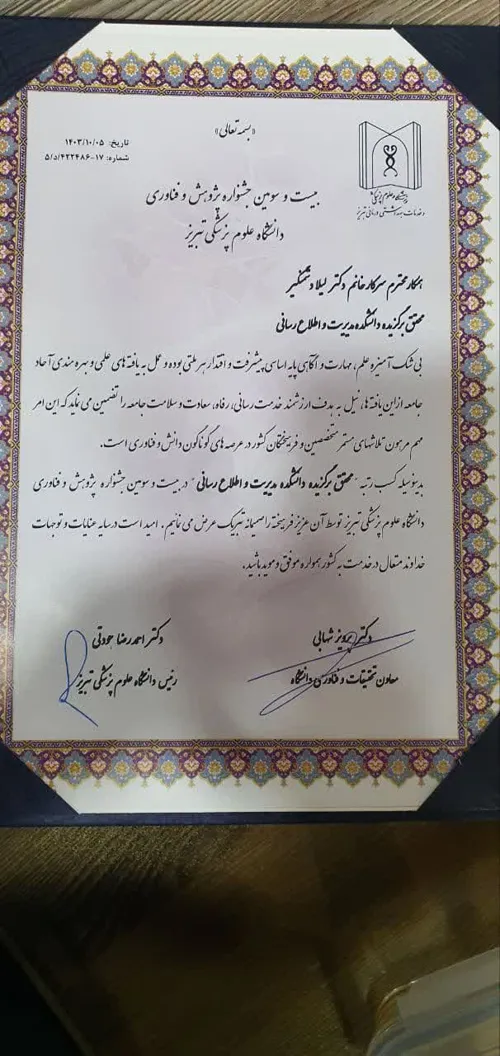 «بسمه تعالی»
تاریخ: ۱۴۰۳/۱۰/۰۵
شماره: ۱۷-۴۲۲۴۸۶/د/۵
دانشگاه علوم پزشکی
و خدمات بهداشتی درمانی تبریز
بیست و سومین جشنواره پژوهش و فناوری
دانشگاه علوم پزشکی تبریز
همکار محترم سرکار خانم دکتر لیلا دشمنگیر
محقق برگزیده دانشکده مدیریت و اطلاع رسانی
بی شک آمیزه علم، مهارت و آگاهی پایه اساسی پیشرفت و اقتدار هر ملتی بوده و عمل به یافته های علمی و بهره مندی آحاد
جامعه از این یافته ها، نیل به هدف ارزشمند خدمت رسانی، رفاه، سعادت و سلامت جامعه را تضمین می نماید که این امر
مهم مرهون تلاشهای مستمر متخصصین و فرهیختگان کشور در عرصه های گوناگون دانش و فناوری است.
بدینوسیله کسب رتبه "محقق برگزیده دانشکده مدیریت و اطلاع رسانی" در بیست و سومین جشنواره پژوهش و فناوری
دانشگاه علوم پزشکی تبریز توسط آن عزیز فرهیخته را صمیمانه تبریک عرض می نمایم. امید است در سایه عنایات و توجهات
خداوند متعال در خدمت به کشور همواره موفق و موید باشید.
دکتر پرویز شهابی
معاون تحقیقات و فناوری دانشگاه
دکتر احمدرضا جودتی
رئیس دانشگاه علوم پزشکی تبریز